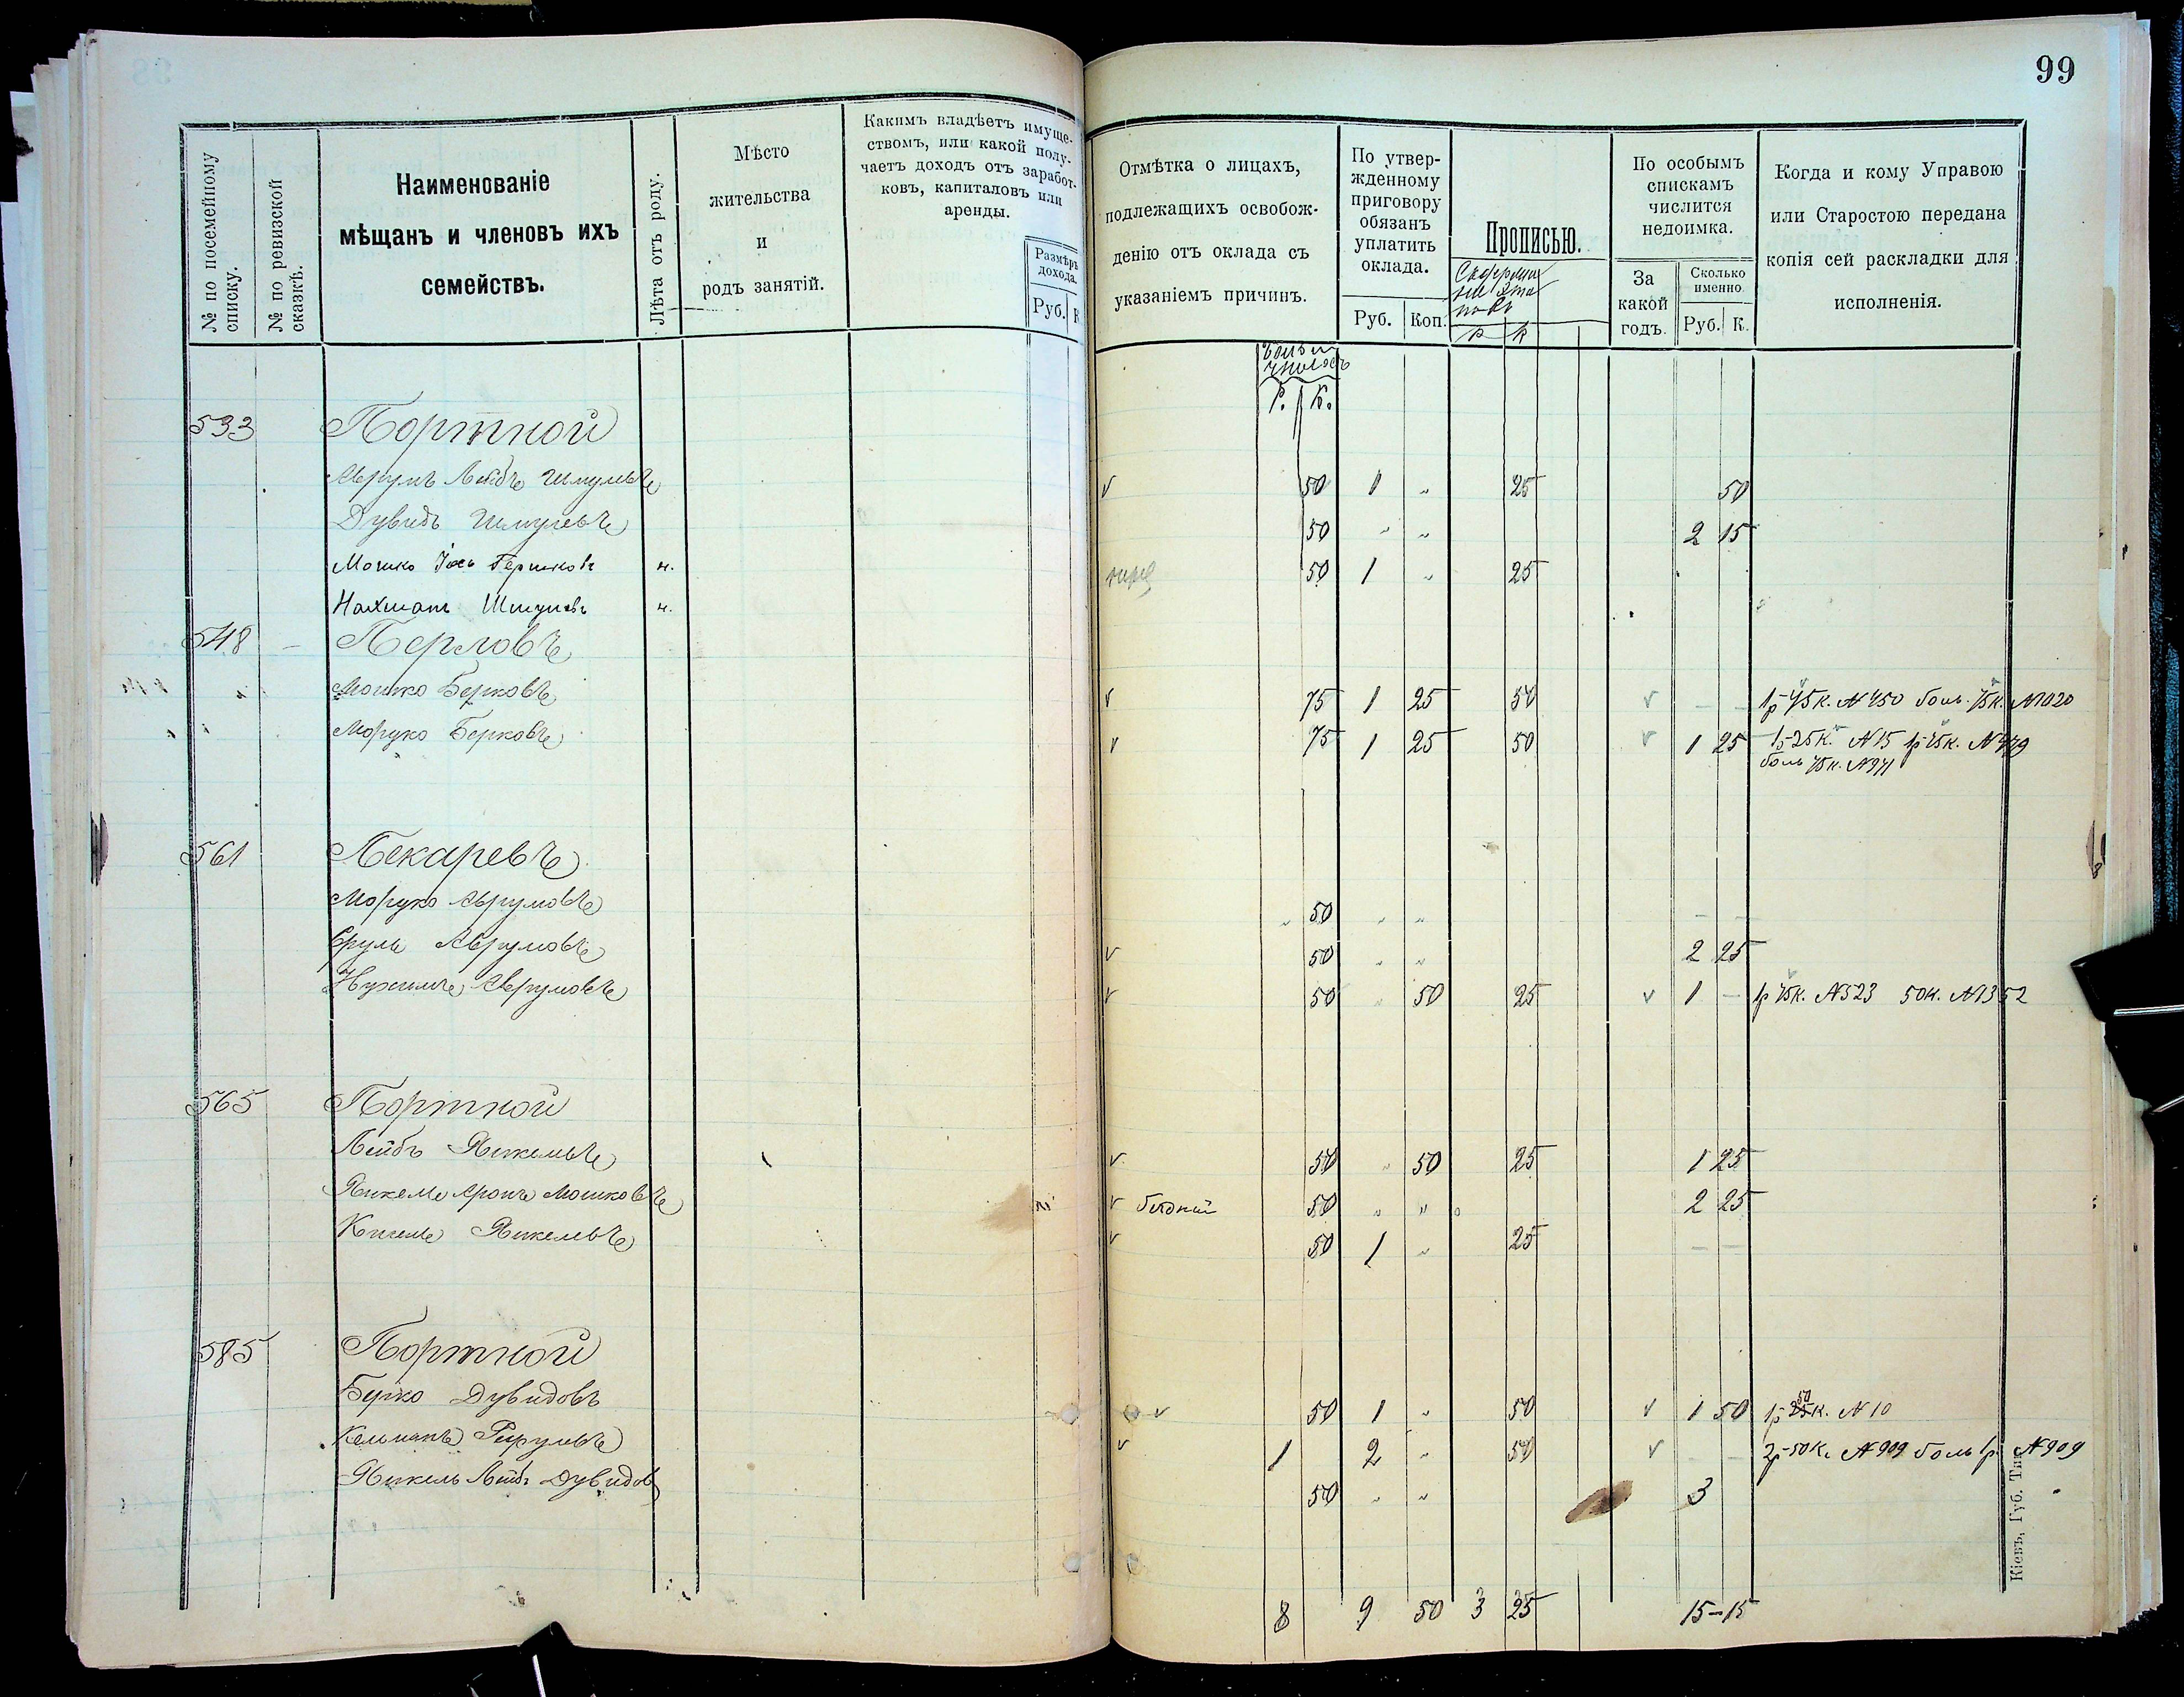 99
№ по посемейному списку.
№ по ревизской сказкѣ.
Наименованіе
мѣщанъ и членовъ ихъ
семействъ.
Лѣта отъ роду.
Мѣсто
жительства
и
родъ занятій.
Какимъ владѣетъ имуще-
ствомъ, или какой полу-
чаетъ доходъ отъ заработ-
ковъ, капиталовъ или
аренды.
Размѣръ
дохода.
Руб. К
Отмѣтка о лицахъ,
подлежащихъ освобож-
денію отъ оклада съ
указаніемъ причинъ.
По утвер-
жденному
приговору
обязанъ
уплатить
оклада.
Руб. Коп.
Прописью.
р к
По особымъ
спискамъ
числится
недоимка.
За
какой
годъ.
Сколько
именно.
Руб. К.
Когда и кому Управою
или Старостою передана
копія сей раскладки для
исполненія.
Р. К.
533 Портной
Аврумъ Лейбъ Шмулевъ v 50 1 " 25 50
Дувидъ Шмулевъ 50 " " 2 15
Мошко Іось Гершковъ н. 50 1 " 25
Нахман Шмулевъ н.
548 – Перловъ
Мошко Берковъ v 75 1 25 50 v – – 1р 75к. №450 боль. 75к. №1020
Моруко Берковъ v 75 1 25 50 v 1 25 1р 25к. №15 1р 75к. №449
боль 75к. №971
561 Пекаревъ
Моруко Аврумовъ " 50 " " – –
Сруль Аврумовъ v 50 " " 2 25
Нухимъ Аврумовъ v 50 " 50 25 v 1 – 1р 75к. №523 50к. №1352
565 Портной
Лейбъ Янкелевъ v 50 " 50 25 1 25
Янкель Аронъ Мошковъ v бѣдный 50 " " 2 25
Кисель Янкелевъ v 50 1 " 25 – –
585 Портной
Берко Дувидовъ v 50 1 " 50 v 1 50 1р 50 25к. №10
Кельманъ Сруль v 1 2 " 50 v – – 2р 50к. №909 боль 1р №909
Янкель Лейбъ Дувидов 50 " " 3
8 9 50 3 25 15–15
Кіевъ, Губ. Тип.